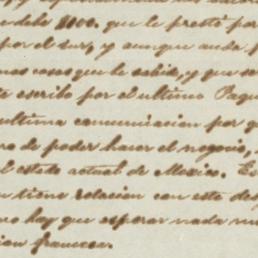 debe 1100. que le prestó por
por el sur, y aunque anda p
mas cosas que le sabia, y que se
te escribo por el ultimo Paque
ultima comunicacion por q
ra de poder hacer el negocio,
el estado actual de Mexico. Es
n tiene relacion con este des
no hay que esperar nada m
cion francesa.